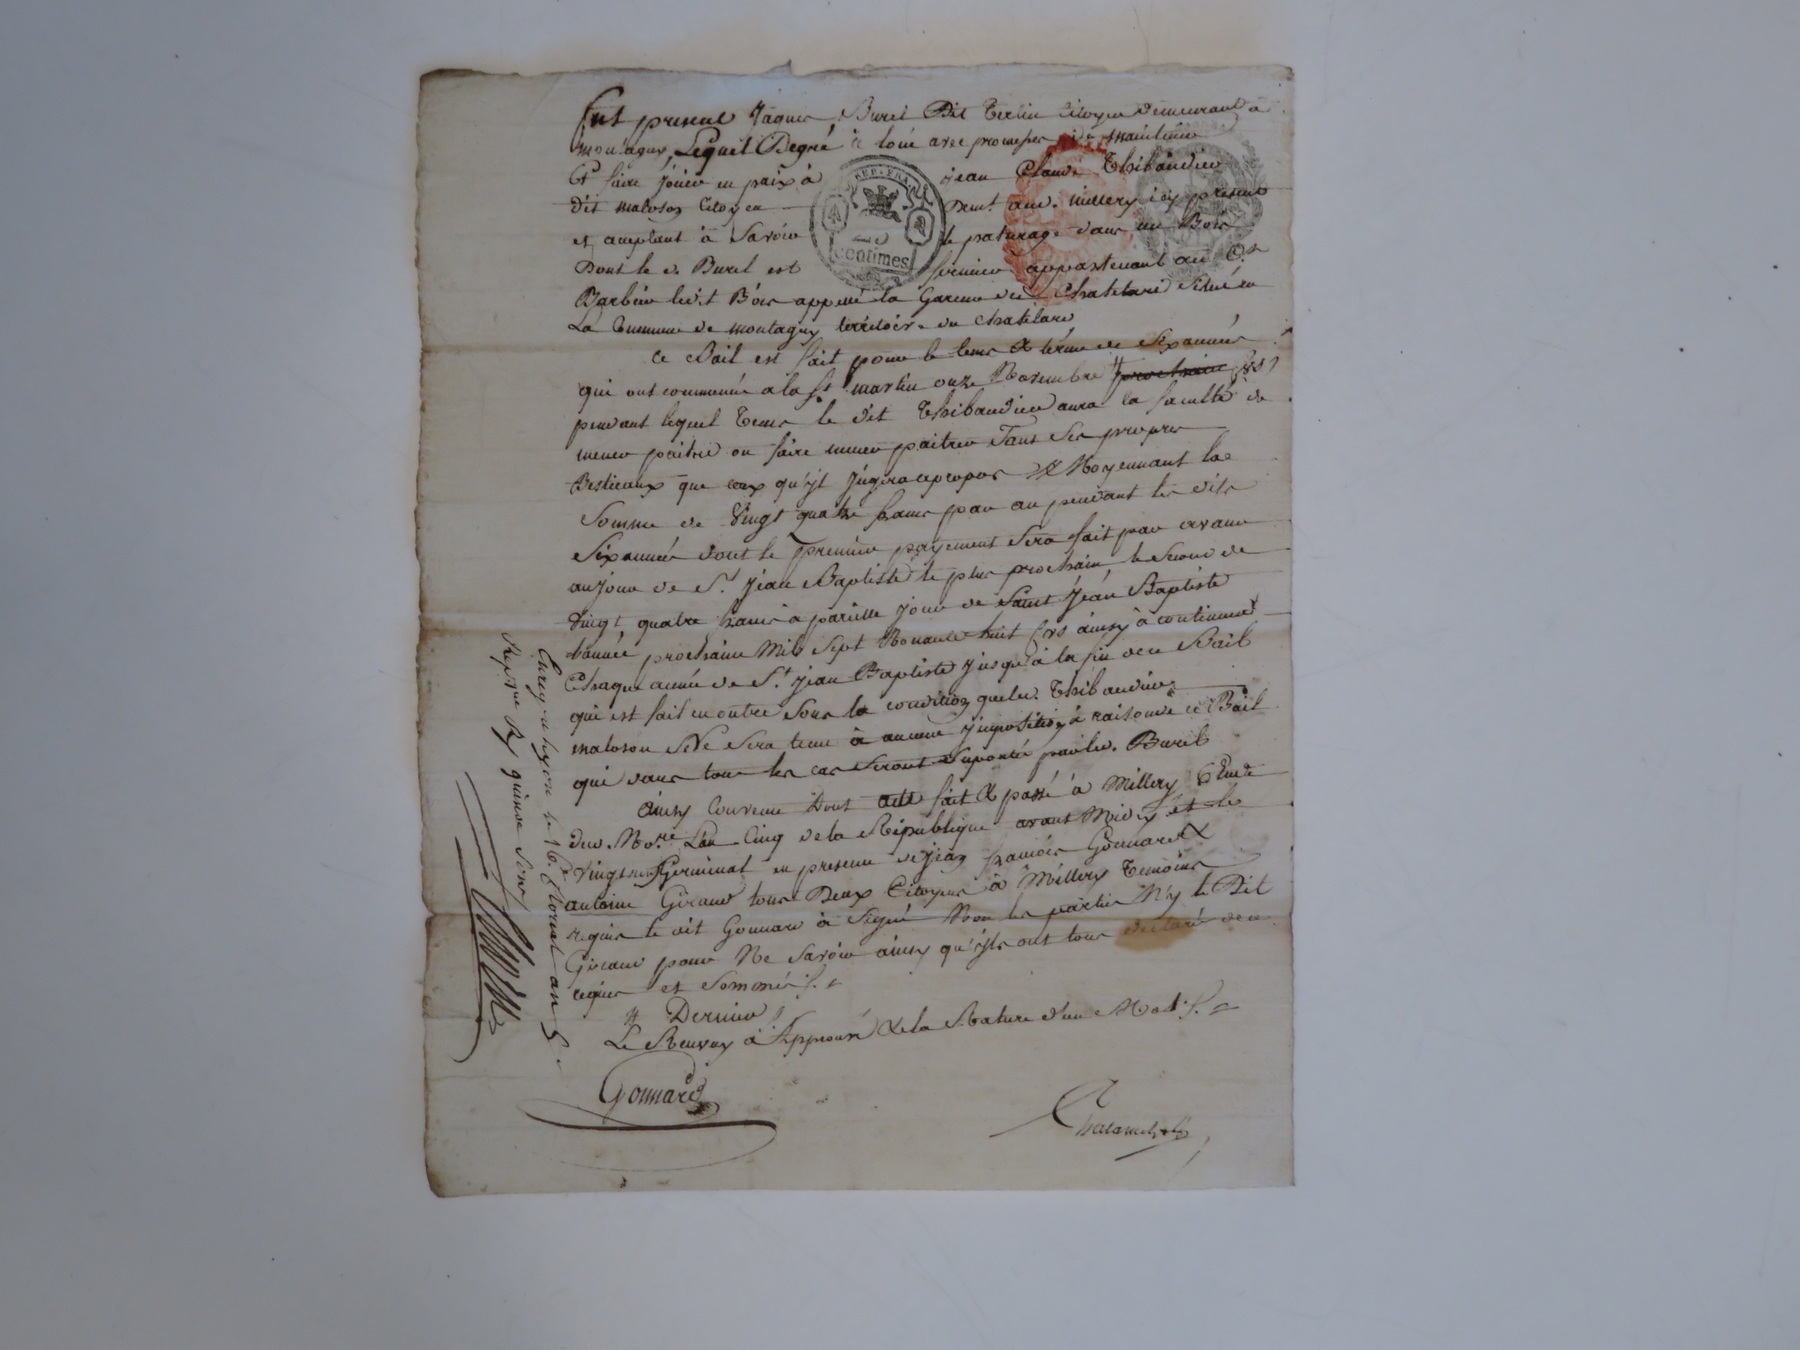 fut present Jâques Burel Dit Terlin Citoyen Demeurant à
montagny, Lequel Degré à loué avec promesses de maintenir
Et faire Jouir en paix à jean Claude Thibaudier
dit maloson Citoyen Demt. aud. millery icy présent
et aceptant à Savoir le paturage dans un Bois
Dont le d. Burel est fermier appartenant au Cn
Barbier ledit Bois appellé la Garenne du Chatelard Situé en
La Commune de montagny territoire du Chatelard
REP. FRA.
centimes
Ce Bail est fait pour le tems & térme de Six années
qui ont commencé a la St. martin onze Novembre # prochain
pendant lequel Tems le dit Thibaudier aura la faculté de
mener paitre ou faire mener paitre Tant Ses propres
Bestieaux que ceux qu'jl Jugera apropos & Moyennant la
Somme de Vingt quatre francs par an pendant les dits
Six années dont le premier payement Sera fait par avance
au jour de St. Jean Baptiste le plus prochain le Second de
Vingt quatre francs à pareille jour de Saint Jéan Baptiste
l'année prochaine Mil Sept Nonante huit ainsy à continuer
Chaque année de St. jean Baptiste jusqu'à la fin de ce Bail
qui est fait en outre Sous la condition que led. Thibaudier
maloson Ne Sera tenu à aucune jmposition à raison de ce Bail
qui dans tous les cas Seront Suportés par led. Burel
Ainsy Convenu Dont acte fait & passé à Millery Etude
dud. Nore. L'an Cinq de la République avant Midy et le
Vingt neuf Germinal en presence de jean françois Gonnard &
antoine Giraud tous Deux Citoyens à Millery Temoins
requis le dit Gonnard à Signé Non les parties N'y le Dit
Giraud pour Ne Savoir ainsy qu'jls ont tous declaré de ce
requis et Sommés
# Dernier
Le Renvoy à Approuvé & la Rature d'un Mot
Gonnard
Enregé. à Lyon le 16. floreal an 5
Reçu quinze Sous